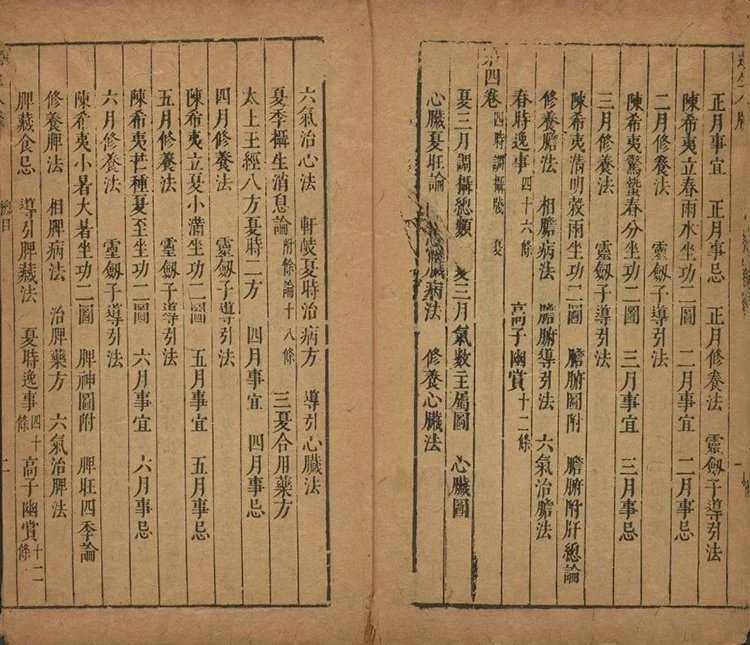 正月事宜　正月事忌　正月修養法　靈劔子導引法
陳希夷立春雨水坐功二圖　二月事宜　二月事忌
二月修養法　靈劔子導引法
陳希夷驚蟄春分坐功二圖　三月事宜　三月事忌
三月修養法　靈劔子導引法
陳希夷清明穀雨坐功二圖　膽腑圖附　膽腑附肝總論
修養膽法　相膽病法　膽腑導引法　六氣治膽法
春時逸事四十六條　高子幽賞十二條
第四卷四時調攝牋　夏
夏三月調攝總類　夏三月氣數主屬圖　心臟圖
心臟夏旺論　心臟病法　修養心臟法
六氣治心法　軒岐夏時治病方　導引心臟法
夏季攝生消息論附餘論十八條　三夏合用藥方
太上王經八方夏時二方　四月事宜　四月事忌
四月修養法　靈劔子導引法
陳希夷立夏小滿坐功二圖　五月事宜　五月事忌
五月修養法　靈劔子導引法
陳希夷芒種夏至坐功二圖　六月事宜　六月事忌
六月修養法　靈劔子導引法
陳希夷小暑大暑坐功二圖　脾神圖附　脾旺四季論
修養脾法　相脾病法　治脾藥方　六氣治脾法
脾藏食忌　導引脾藏法　夏時逸事四十條　高子幽賞十二條
總目　二